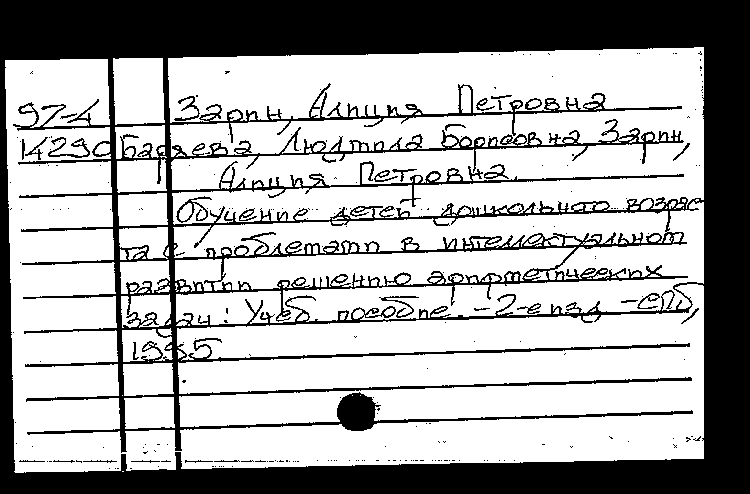 97-4 Зарин, Алиция Петровна
14290 Баряева, Людмила Борисовна, Зарин,
Алиция Петровна.
Обучение детей дошкольного возрас
та с проблемами в интеллектуальном
развитии решению арифметических
задач: Учеб. пособие. -2-е изд -СПб,
1995